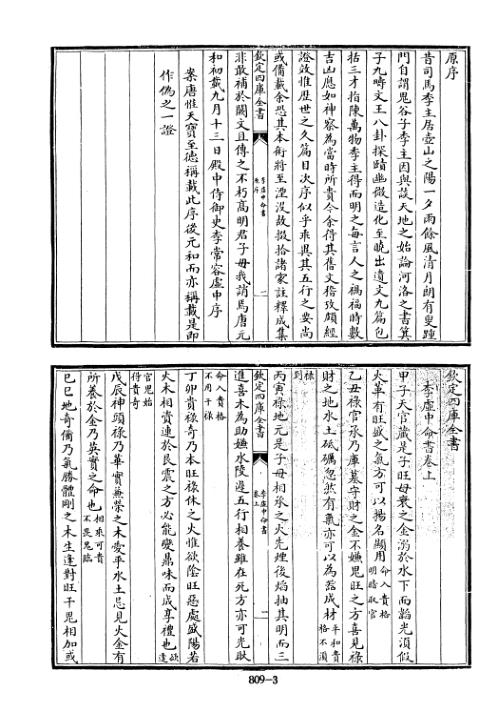 原序
昔司馬季主居壺山之陽一夕雨餘風清月朗有叟踵
門自謂鬼谷子季主因與談天地之始論河洛之書箕
子九疇文王八卦探賾幽微造化至曉出遺文九篇包
括三才指陳萬物季主得而明之每言人之禍福時數
吉凶應如神察為當時所貴今余得其舊文稽攷頗經
證效惟歷世之久篇目次序似乎乖異其五行之要尚
或備載余恐其本術將至湮沒故掇拾諸家註釋成集
欽定四庫全書
李虛中命書
原序
二
非敢補於闕文且傳之不朽高明君子毋我誚焉唐元
和初載九月十三日殿中侍御史李常容虛中序
案唐惟天寶至德稱載此序後元和而亦稱載是即
作偽之一證
欽定四庫全書
李虛中命書卷上
甲子天官藏是子旺母衰之金溺於水下而韜光須假
火革有旺盛之氣方可以揚名顯用命入貴格明暗取官
乙丑祿官承乃庫墓守財之金不嫌鬼旺之方喜見祿
財之地水土砥礪忽然有氣亦可以為器成材平和貴格不須
祿到
丙寅祿地元是子母相承之火先煙後焰抽其明而三
欽定四庫全書
李虛中命書
卷上
一
進喜木為助嫌水陵遲五行相養雖在死方亦可光耿
命入貴格不用干祿
丁卯貴祿奇乃本旺祿休之火惟欲陰旺惡處盛陽若
火木相資連於艮震之方必能變鼎味而成享禮也欲逢
官鬼始得貴奇
戊辰神頭祿乃華實兼榮之木愛平水土忌見火金有
所養於金乃英實之命也相乘可貴不畏鬼臨
己巳地奇備乃氣勝體剛之木生逢對旺干鬼相加或
809-3